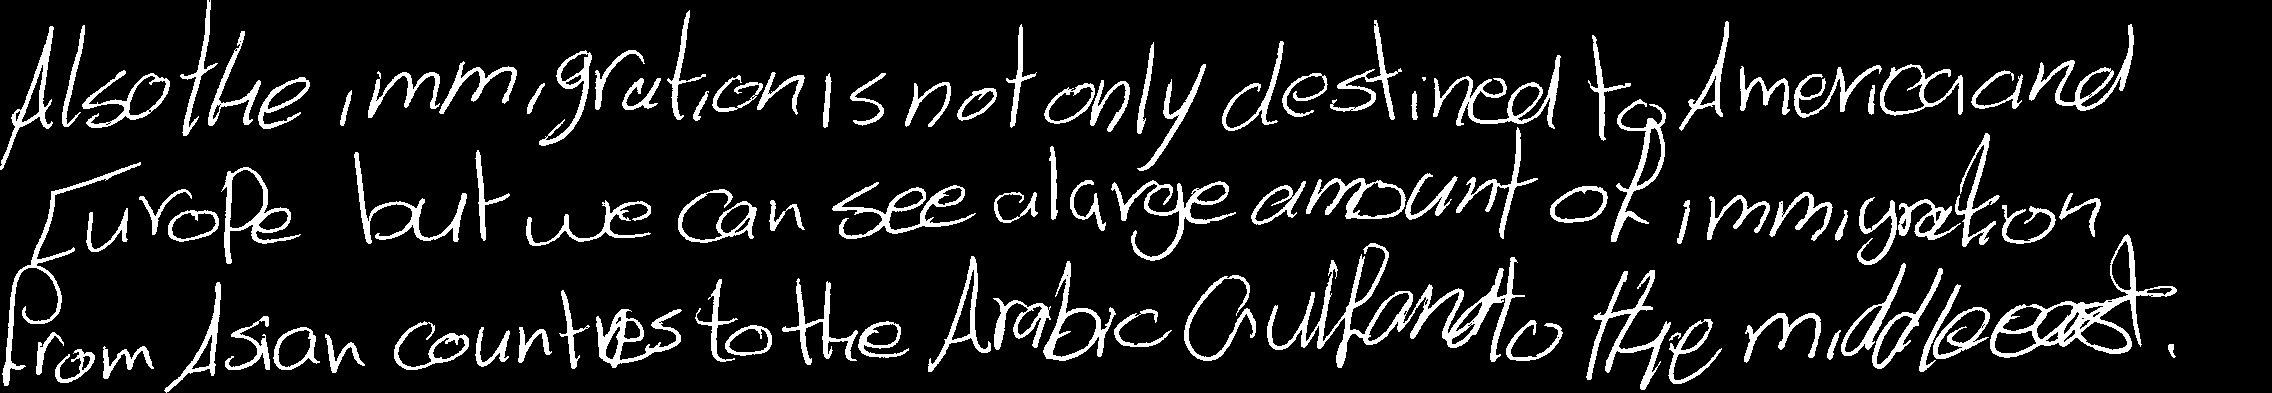 Also the immigration is not only destined to America and
Europe but we can see a large amount of immigration
from Asian countries to the Arabic Gulf and to the middle east.